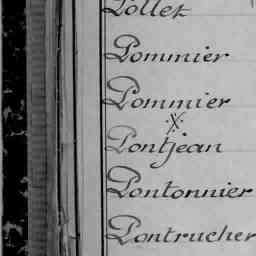 Pollet
Pommier
Pommier
X
Pontjean
Pontonnier
Pontrucher